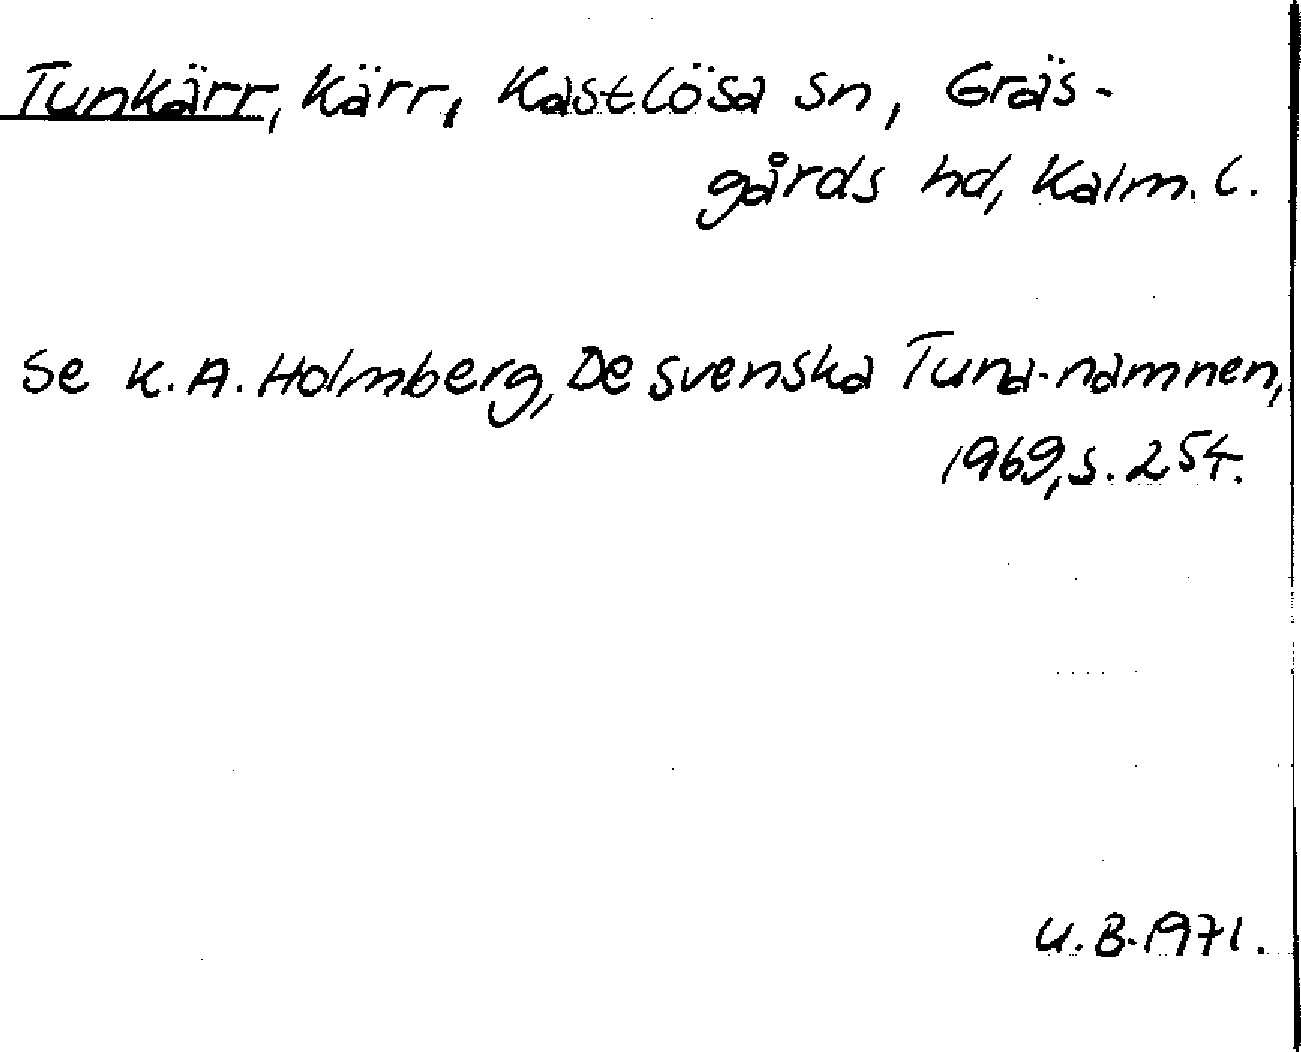 Tunkärr, Kärr, Kastlösa sn, Gräs-
gårds hd, Kalm. l.
Se K. A. Holmberg, De svenska Tuna-namnen,
1969, s. 254.
U. B. 1971.